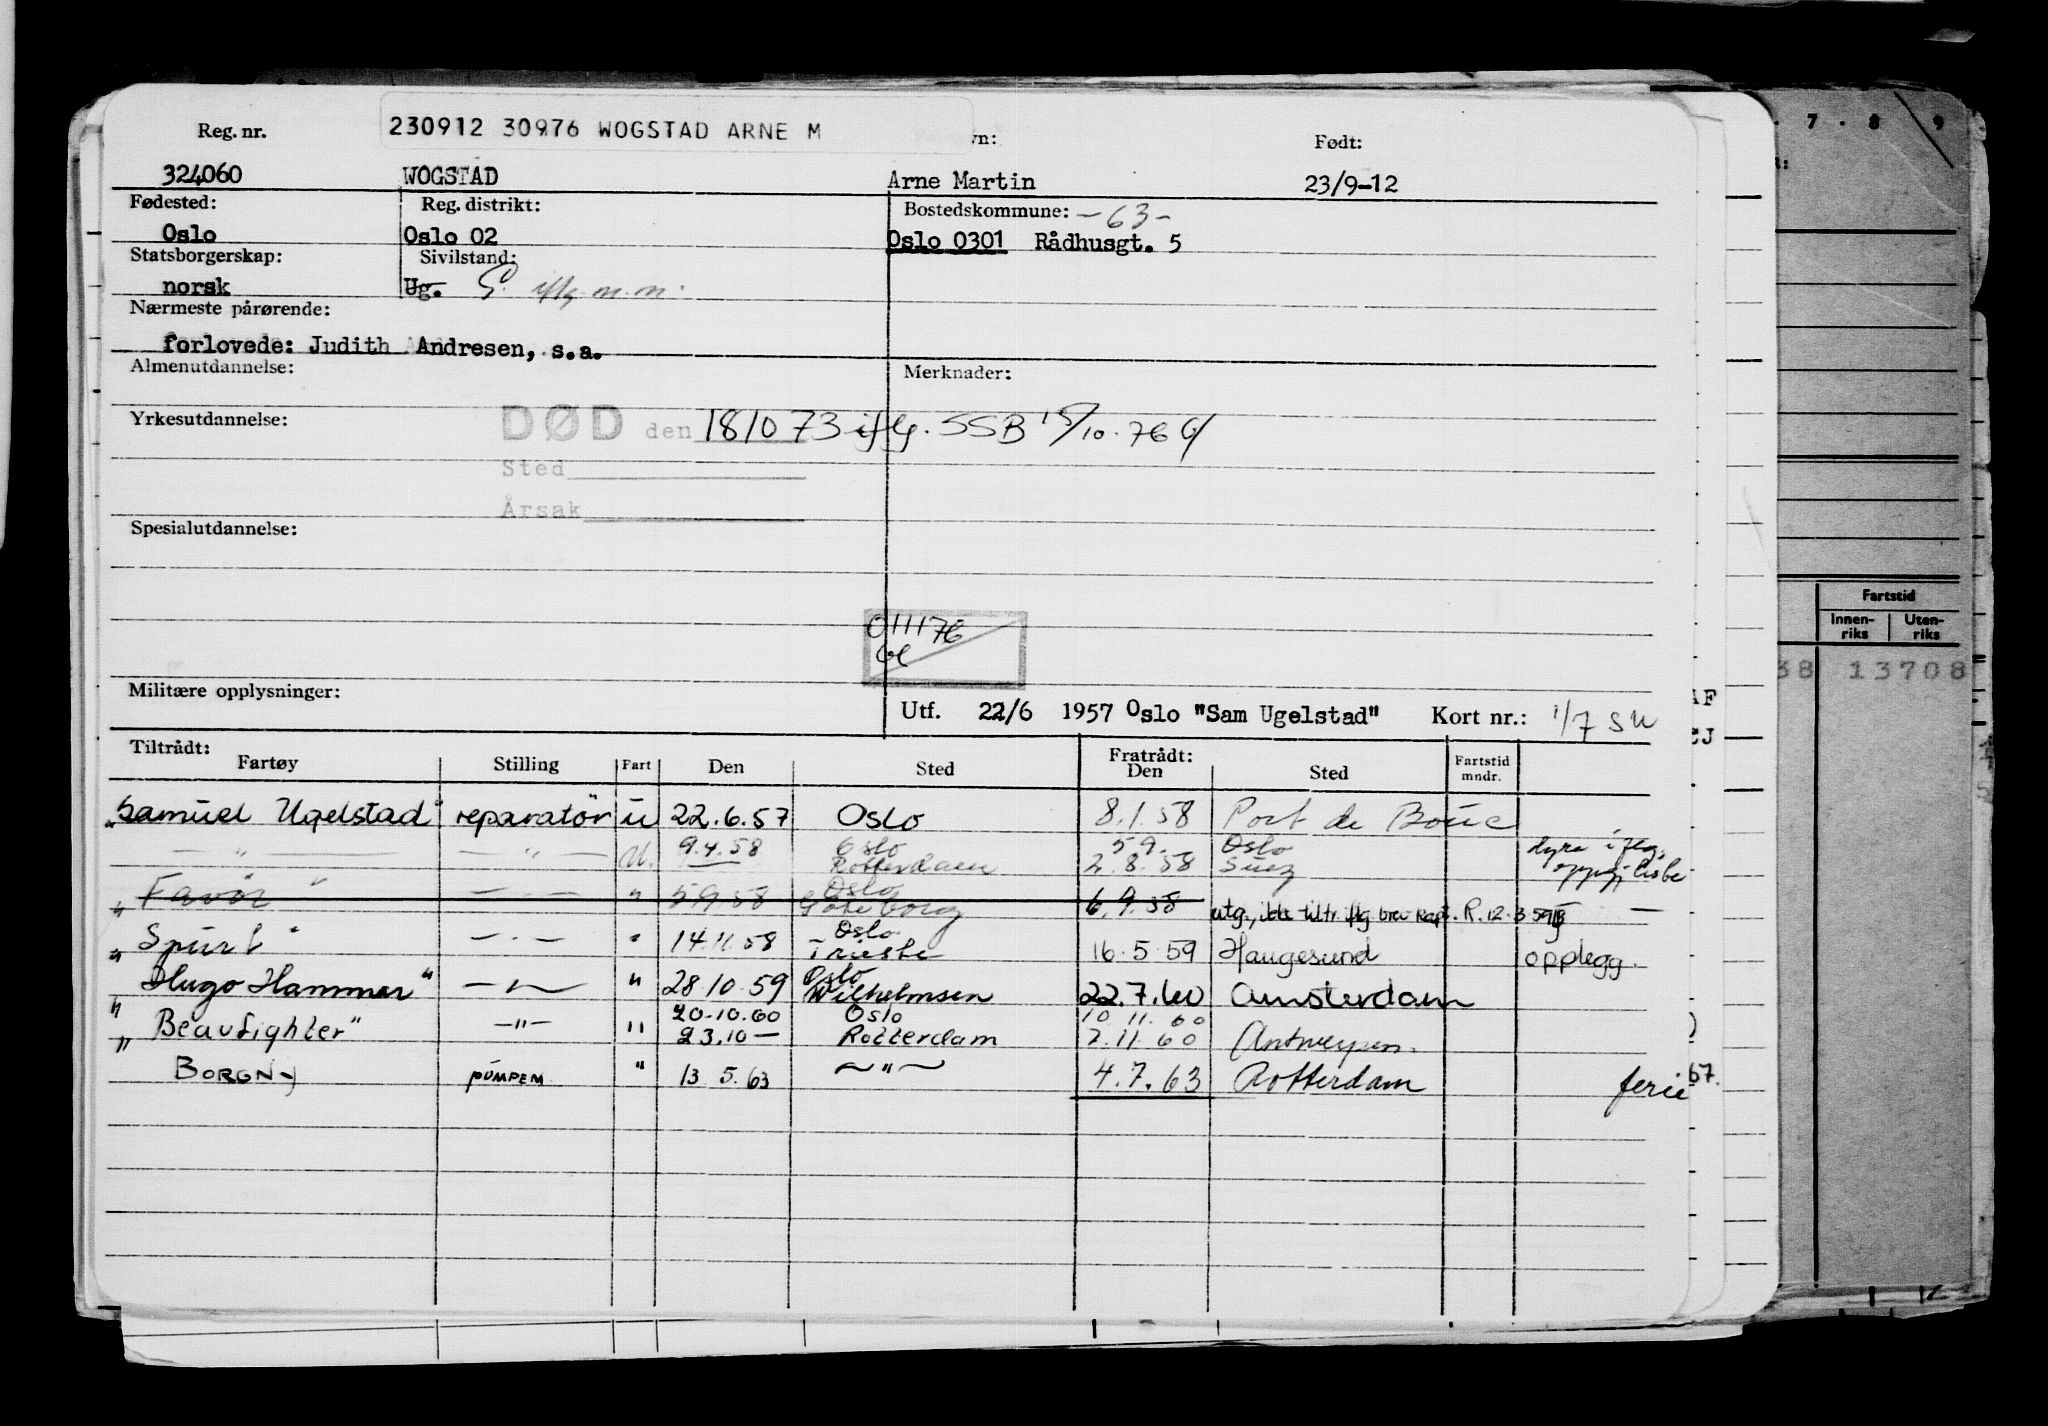 230912 30976 WOGSTAD ARNE M
Reg. nr. vn: Født:
324060 WOGSTAD Arne Martin 23/9-12
Fødested: Reg. distrikt: Bostedskommune: -63-
Oslo Oslo 02 Oslo 0301 Rådhusgt. 5
Statsborgerskap: Sivilstand:
norsk Ug. G. iflg. m.m.
Nærmeste pårørende:
forlovede: Judith Andresen, s.a.
Almenutdannelse: Merknader:
Yrkesutdannelse: DØD den 181073 iflg. SSB 15/10.76
Sted
Årsak
Spesialutdannelse:
011176
Militære opplysninger:
Utf. 22/6 1957 Oslo "Sam Ugelstad" Kort nr.: 1/7 SU
Tiltrådt: Fratrådt:
Fartøy Stilling Fart Den Sted Den Sted Fartstid mndr.
"Samuel Ugelstad" reparatör u 22.6.57 Oslo 8.1.58 Port de Bouc
— " — — " — U. 9.4.58 Oslo Rotterdam 5 9. 2.8.58 Oslo Suez
"Favör" — " — " 5.9.58 Oslo Göteborg 6.9.58 utg., ikke tiltr. iflg brev R. 12.3 59
"Spurt" — " — " 14.11.58 Oslo Trieste 16.5.59 Haugesund opplegg.
"Hugo Hammer" — " — " 28.10.59 Oslo Wilhelmsen 22.7.60 Amsterdam
"Beaufighter" — " — " 20.10.60 23.10 — Oslo Rotterdam 10.11.60 7.11.60 Antwerpen.
BORGNY PUMPEM. " 13 5.63 — " — 4.7.63 Rotterdam ferie
7 . 8 . 9
Fartstid
Innen-riks Uten-riks
38 13708
AF
67.